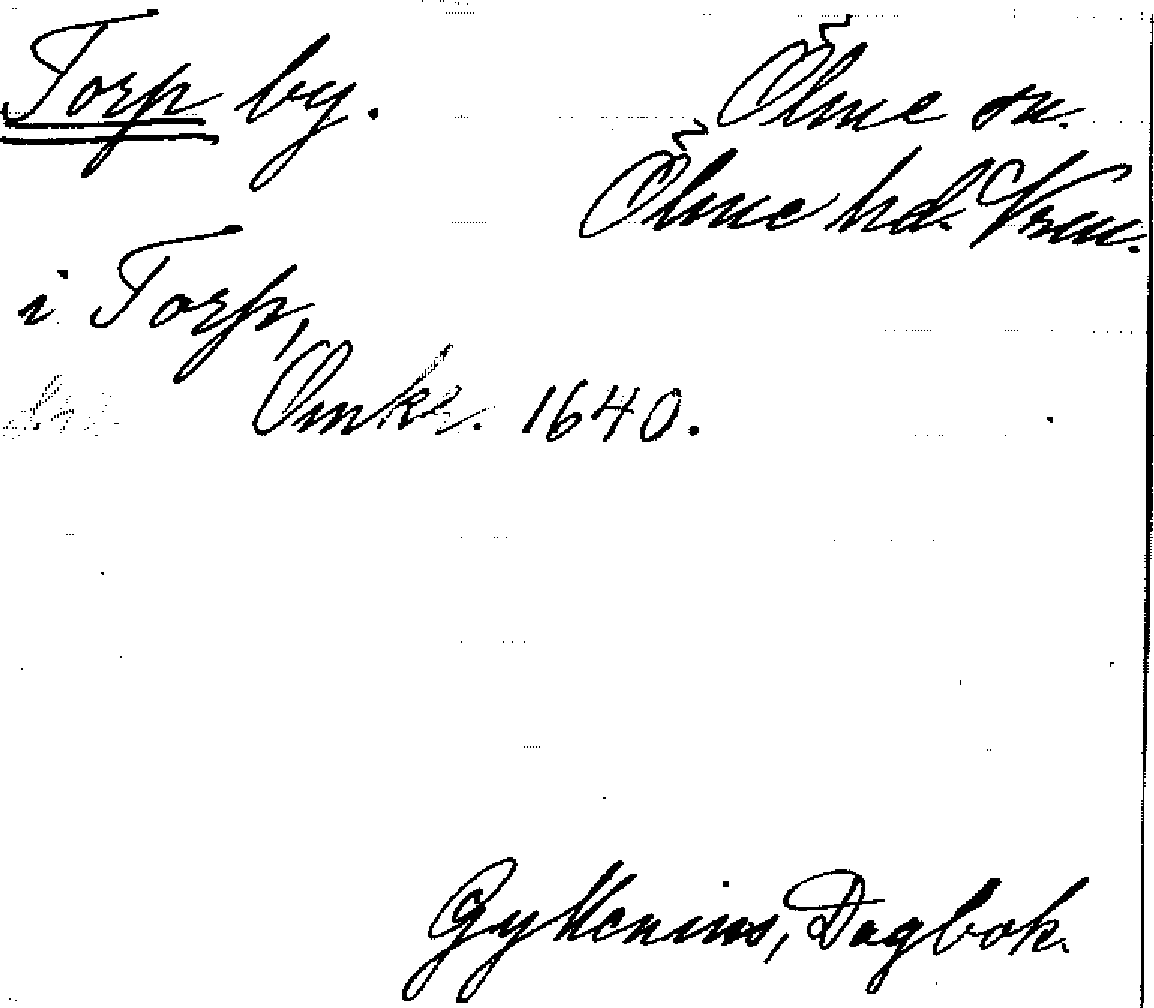 Torp by.
Ölme sn.
Ölme hd. Vrml.
i Torp,
Omkr. 1640.
Gyllenius, Dagbok.